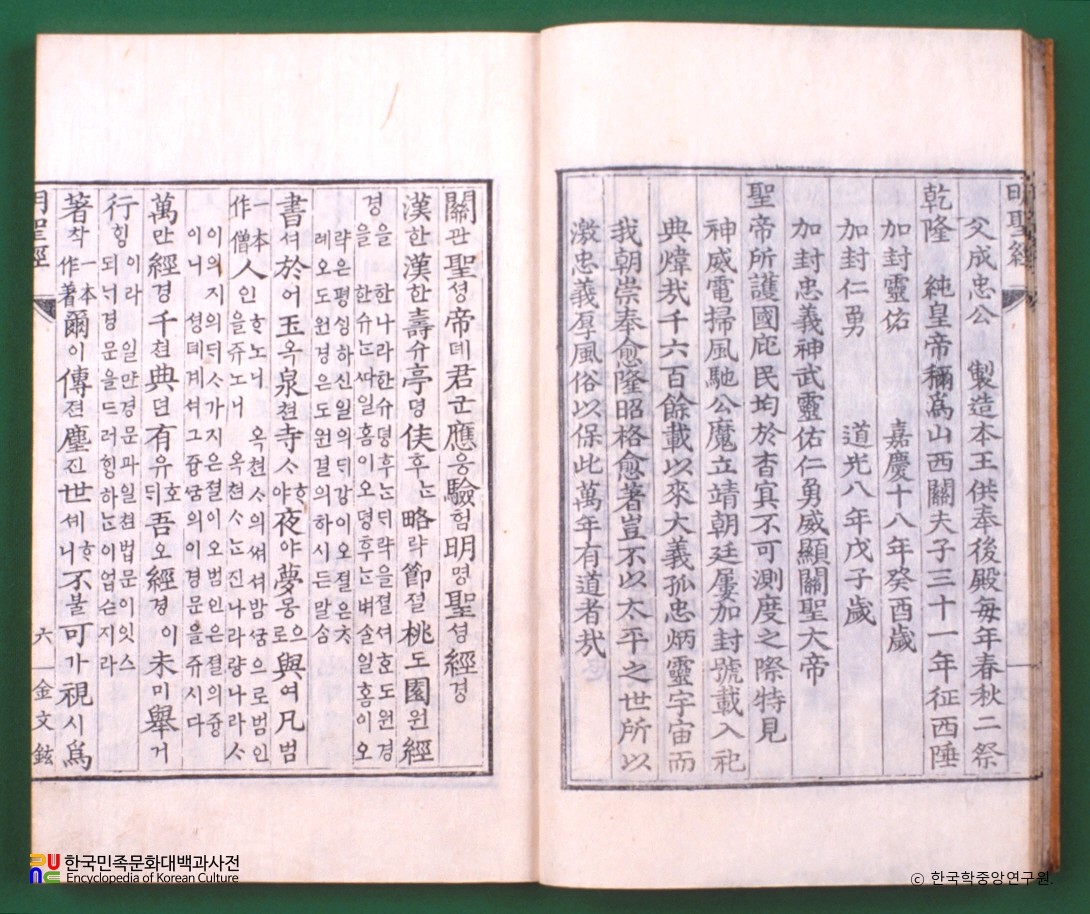 明聖經
父成忠公 製造本王供奉後殿每年春秋二祭
乾隆 純皇帝稱爲山西關夫子三十一年征西陲
加封靈佑 嘉慶十八年癸酉歲
加封仁勇 道光八年戊子歲
加封忠義神武靈佑仁勇威顯關聖大帝
聖帝所護國庇民均於杳冥不可測度之際特見
神威電掃風馳公魔立靖朝廷屢加封號載入祀
典煒㢤千六百餘載以來大義孤忠炳靈宇宙而
我朝崇奉愈隆昭格愈著豈不以太平之世所以
激忠義厚風俗以保此萬年有道者㢤
關관聖셩帝뎨君군應응驗험明명聖셩經경
漢한漢한壽슈亭뎡侯후ᄂᆞᆫ略략節졀桃도園원經
경을 한나라한슈뎡후ᄂᆞᆫ더략을졀셔호도원경
을 한슈ᄂᆞᆫᄯᅡ일홈이오뎡후ᄂᆞᆫ벼ᄉᆞᆯ일홈이오
략은평싱하신일의ᄃᆡ강이오졀은ᄎᆞ
례오도원경은도원결의하시든말ᄉᆞᆷ
書셔於어玉옥泉쳔寺ᄉᆞ야夜야夢몽으로與여凡범
一本作僧人인ᄒᆞ노니 옥쳔ᄉᆞ의셔셔밤ᄭᅮᆷ으로범인
을쥬노니 옥쳔ᄉᆞᄂᆞᆫ진나라량나라ᄉᆞ
이의지의ᄃᆡᄉᆞ가지은졀이오범인은졀의즁
이니 셩뎨계셔그즁ᄭᅮᆷ의이경문을쥬시다
萬만經경千쳔典뎐有유호ᄃᆡ吾오經경이未미擧거
行ᄒᆡᆼ이라 일만경문과일쳔법문이잇스
되ᄂᆡ경문을드러ᄒᆡᆼ하ᄂᆞᆫ이업슨지라
著챡一本作著爾이傳젼塵진世세ᄒᆞ니不불可가視시爲
明聖經
六
金文鉉
한국민족문화대백과사전
Encyclopedia of Korean Culture
ⓒ 한국학중앙연구원.